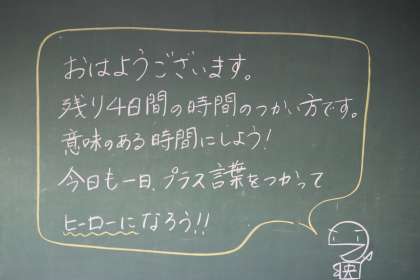 おはようございます。
残り4日間の時間のつかい方です。
意味のある時間にしよう!
今日も一日、プラス言葉をつかって
ヒーローになろう!!